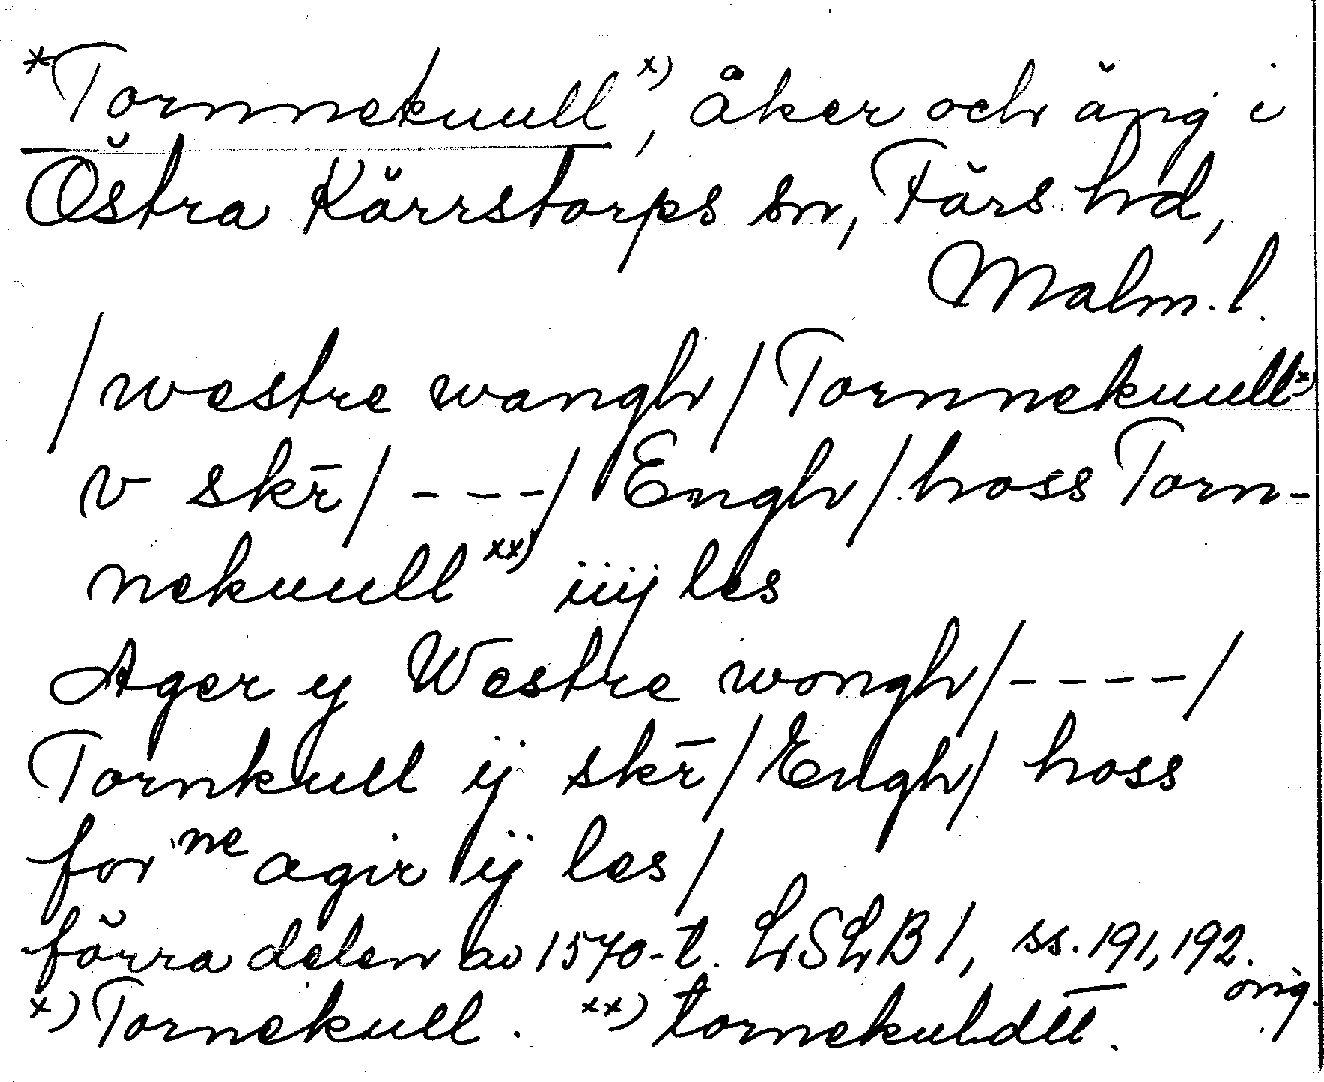 *Tornnekuull x), åker och äng i
Östra Kärrstorps sn, Färs hd,
Malm. l.
/westre wangh/Tornnekuull x)
v skr̄/ - - - -/ Engh/hoss Torn-
nekuull xx) iiij les
Ager y Westre wongh/- - - -/
Tornkull ij skr̄/Engh/ hoss
for ne agir ij les/
förra delen av 1570-t. LSLB 1, ss. 191, 192.
orig.
x) Tornekull. xx) tornekuldtt.